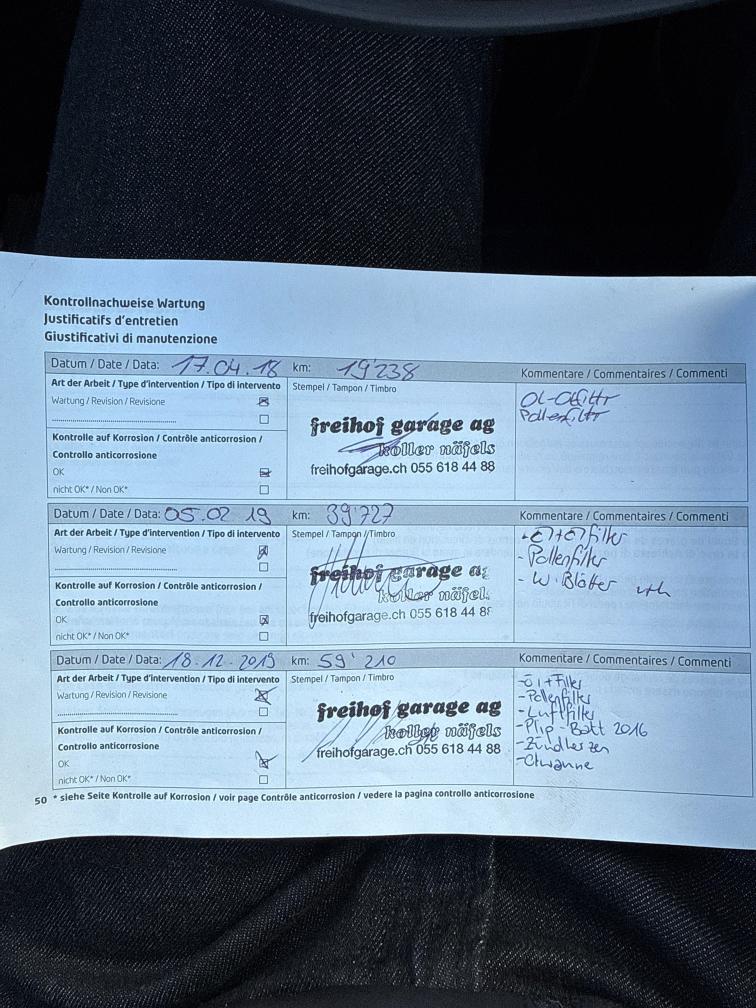 Kontrollnachweise Wartung
Justificatifs d'entretien
Giustificativi di manutenzione
Datum / Date / Data: 17.04.18 km: 19'238 Kommentare / Commentaires / Commenti
Art der Arbeit / Type d'intervention / Tipo di intervento Stempel / Tampon / Timbro
Wartung / Revision / Revisione
Kontrolle auf Korrosion / Contrôle anticorrosion /
Controllo anticorrosione
OK
nicht OK* / Non OK*
freihof garage ag
koller näfels
freihofgarage.ch 055 618 44 88
Datum / Date / Data: 05.02 19 km: 39'727 Kommentare / Commentaires / Commenti
Art der Arbeit / Type d'intervention / Tipo di intervento Stempel / Tampon / Timbro
Wartung / Revision / Revisione
Kontrolle auf Korrosion / Contrôle anticorrosion /
Controllo anticorrosione
OK
nicht OK* / Non OK*
freihof garage ag
koller näfels
freihofgarage.ch 055 618 44 88
- Pollenfilter
- W. Blätter
Datum / Date / Data: 18.12.2019 km: 59'210 Kommentare / Commentaires / Commenti
Art der Arbeit / Type d'intervention / Tipo di intervento Stempel / Tampon / Timbro
Wartung / Revision / Revisione
Kontrolle auf Korrosion / Contrôle anticorrosion /
Controllo anticorrosione
OK
nicht OK* / Non OK*
freihof garage ag
koller näfels
freihofgarage.ch 055 618 44 88
- Öl + Filter
- Pollenfilter
- Luftfilter
- Plip-Batt 2016
- Zündkerzen
50 * siehe Seite Kontrolle auf Korrosion / voir page Contrôle anticorrosion / vedere la pagina controllo anticorrosione